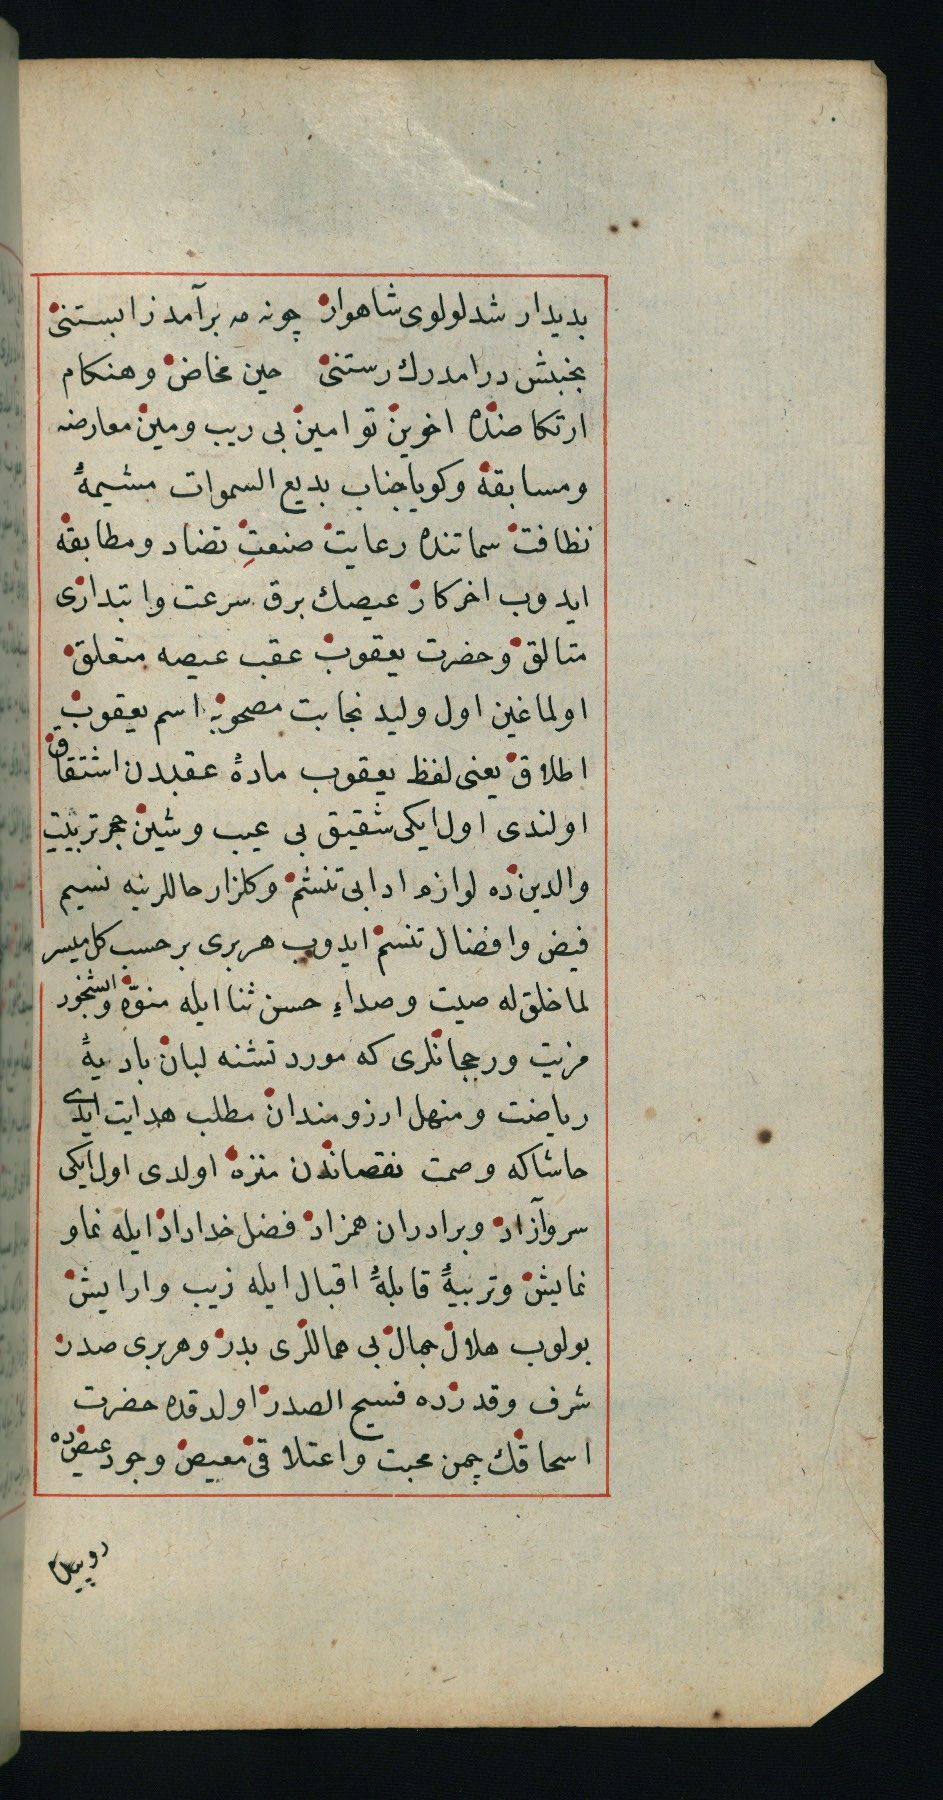 بدیدار شد لولوی شاهوار چونه مه برآمد زابستنی
بجنبش درامد رك رستنی حین مخاض وهنكام
ارتكاضنده اخوین توامین بی ریب ومین معارضه
ومسابقه وكویا جناب بدیع السموات مشیمهٔ
نظافت سماتنده رعایت صنعتِ تضاد ومطابقه
ایدوب اخر كار عیصك برق سرعت وابتداری
متالق وحضرت یعقوب عقب عیصه متعلق
اولماغین اول ولید نجابت مصحوبه اسم یعقوب
اطلاق یعنی لفظ یعقوب مادهٔ عقبدن اشتقاق
اولندی اول ایكی شقیق بی عیب وشین حجر تربیت
والدین ده لوازم ادابی تنشم وكلزار حاللرینه نسیم
فیض وافضال تنسم ایدوب هر بری بر حسب كل میسر
لما خلق له صیت وصداء حسن ثنا ایله منوّه والشخور
مزیت ورجحانلری كه مورد تشنه لبان بادیهٔ
ریاضت ومنهل ارزومندان مطلب هدایت ایدی
حاشاكه وصمت نقصاندن منزه اولدی اول ایكی
سروآزاد وبرادران همزاد فضل خداداد ایله نماو
نمایش وتربیهٔ قابلهٔ اقبال ایله زیب وارایش
بولوب هلال جمال بی هماللری بدر وهر بری صدر
شرف وقدرده فسیح الصدر اولدقده حضرت
اسحاقك چمن محبت واعتلاقی مغیض وجود عیض ده